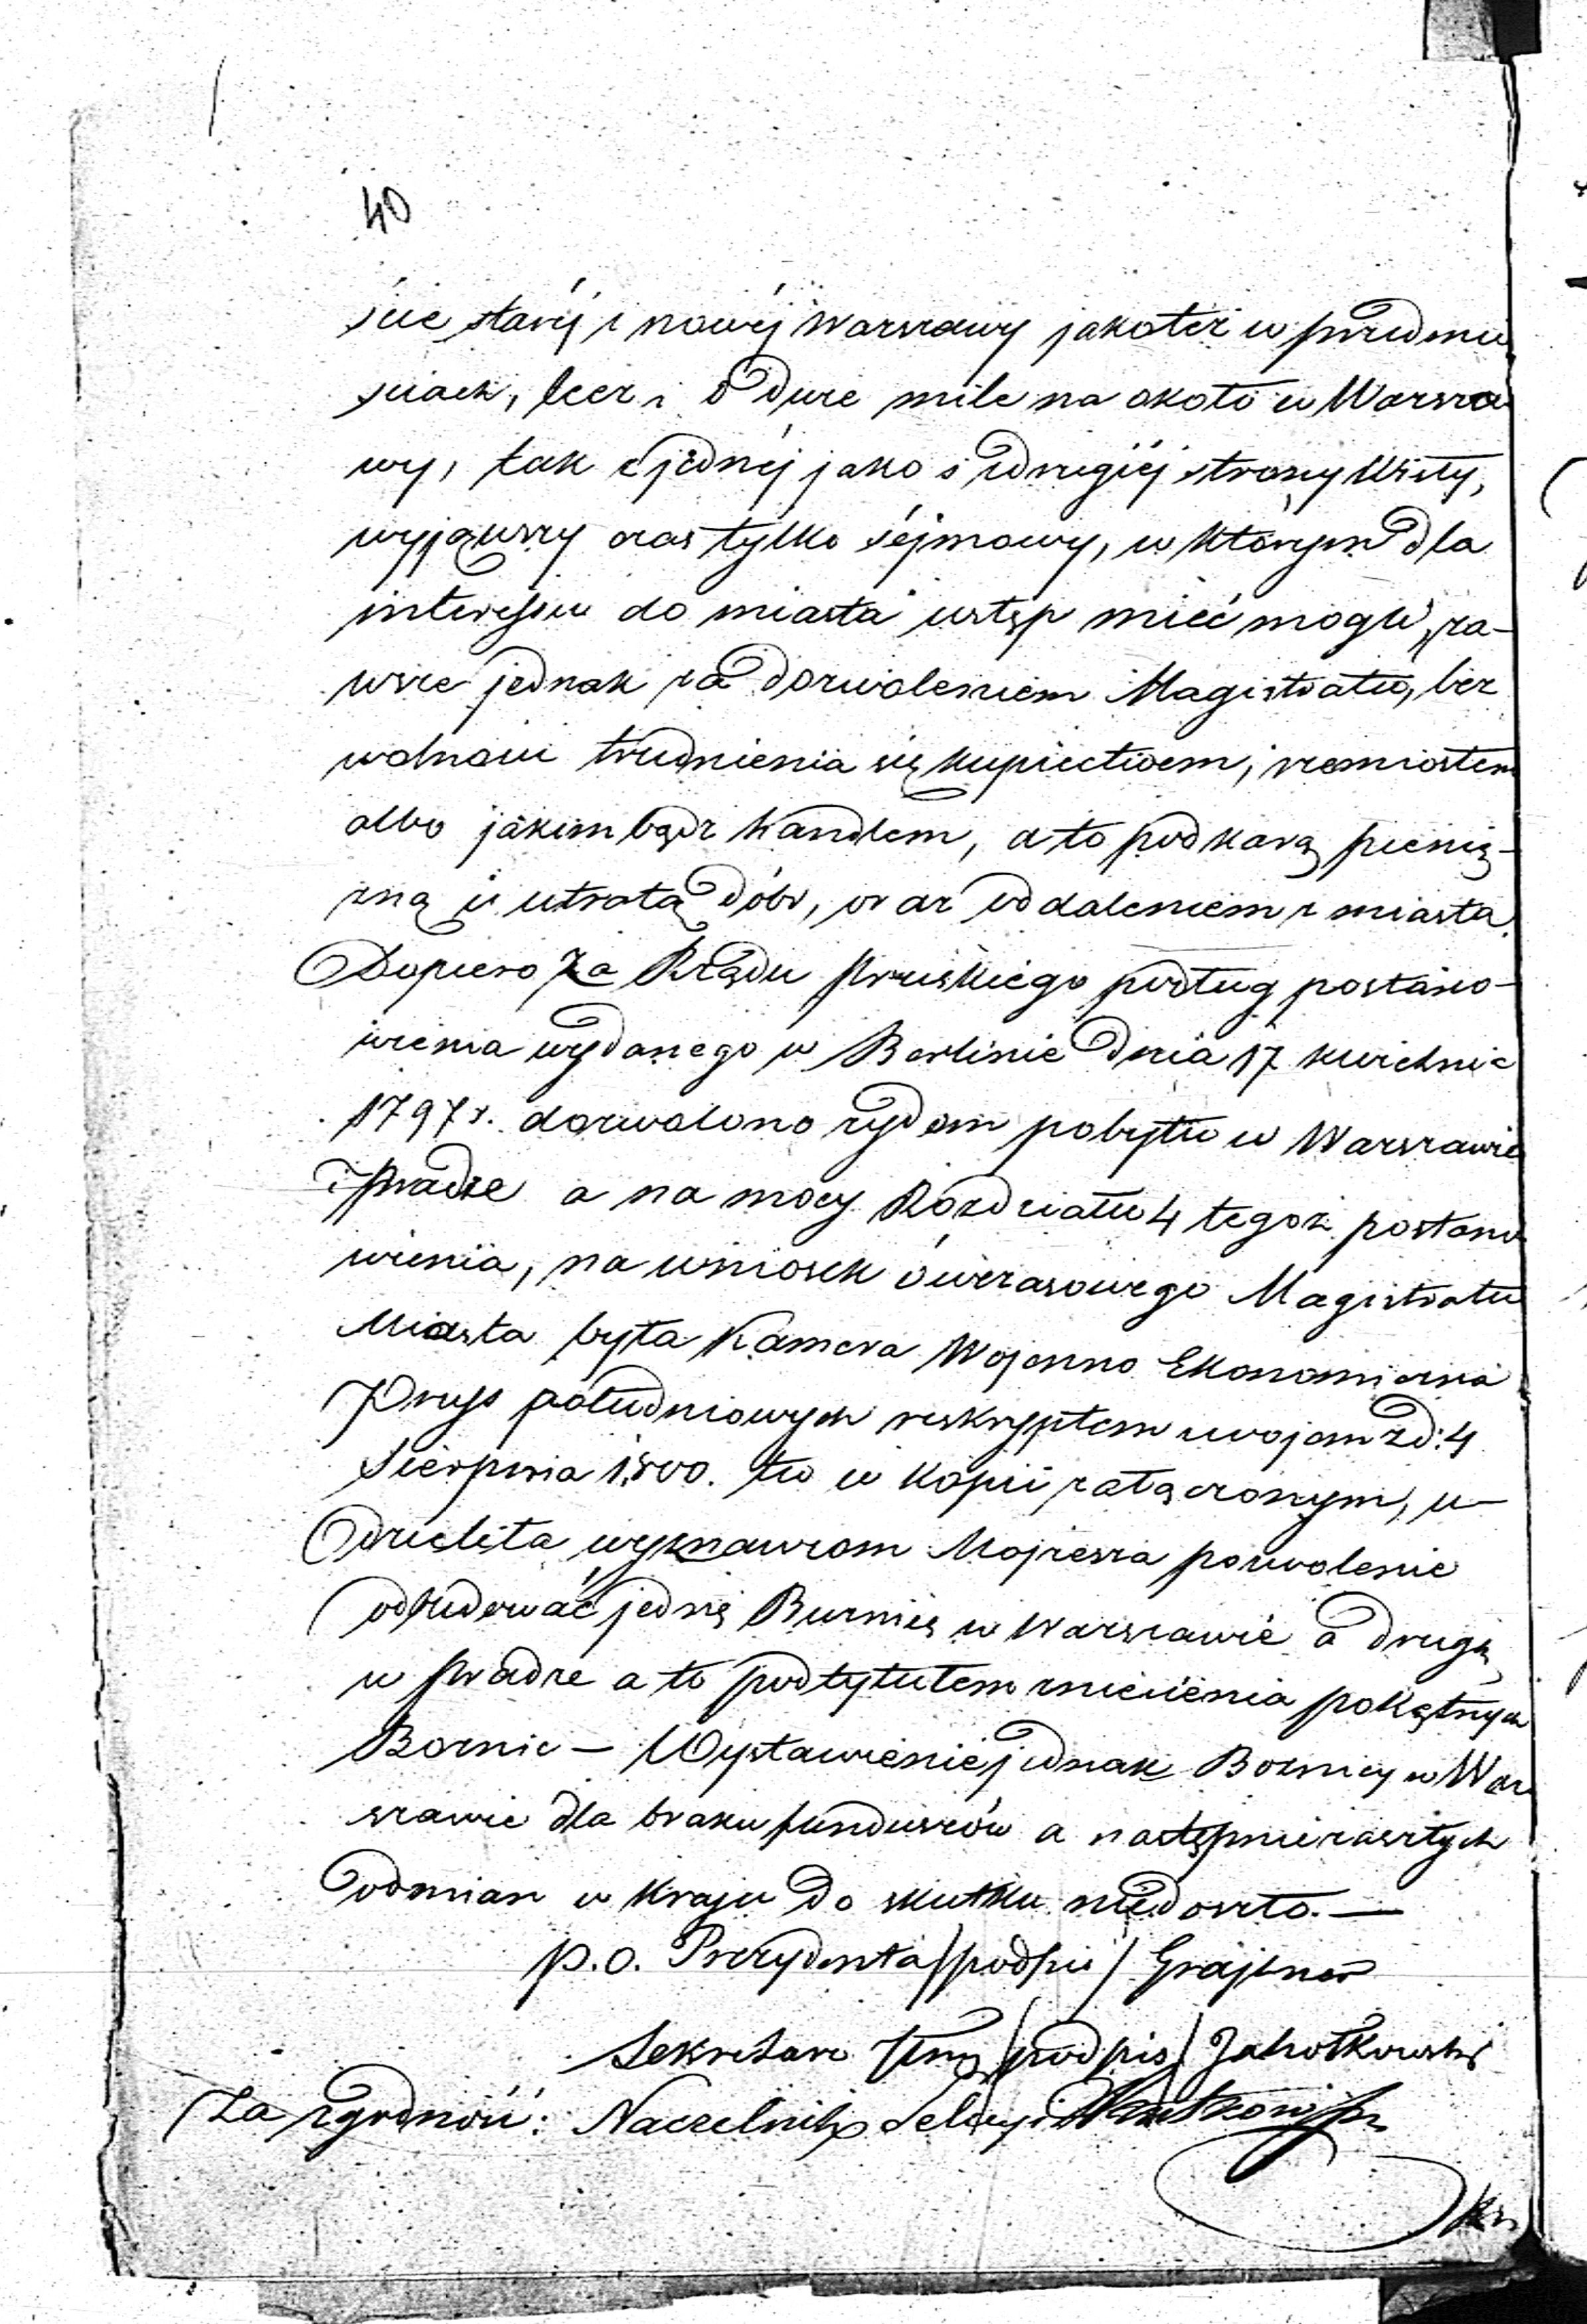 40
ście staréj i nowéj Warszawy jakoteż w przedmie
ściach, lecz i o dwie mile na około w Warsza
wy, tak z jednéj jako i z drugiéj strony Wisły,
wyjąwszy czas tylko séjmowy, w którym dla
interessu do miasta wstęp mieć mogli, za-
wsze jednak za dozwoleniem Magistratu, bez
wolności trudnienia się kupiectwem, rzemiosłem
albo jakim bądź handlem, a to pod karą pienię-
żną i utratą dóbr, oraz oddaleniem z miasta.
Dopiero za Rządu Pruskiego podług postano-
wienia wydanego w Berlinie dnia 17 kwietnia
1797 r. dozwolono żydom pobytu w Warszawie
i Pradze a na mocy Rozdziału 4 tegoż postano
wienia, na wniosek ówczasowego Magistratu
Miasta była Kamera Wojenno Ekonomiczna
Prus południowych reskryptem swojem z d: 4
Sierpnia 1800. tu w kopii załączonym, u-
dzieliła wyznawcom Mojżesza pozwolenie
odbudować jednę Bużnię w Warszawie a drugą
w Pradze a to pod tytułem zniesienia pokątnych
Bożnic — Wystawienie jednak Bożnicy w War
szawie dla braku funduszów a następnie zaszłych
odmian w kraju do skutku niedoszło. —
p.o. Prezydenta /podpis/ Grajbner
Sekretarz /podpis/
Za zgodność: Naczelnik Sekcyi